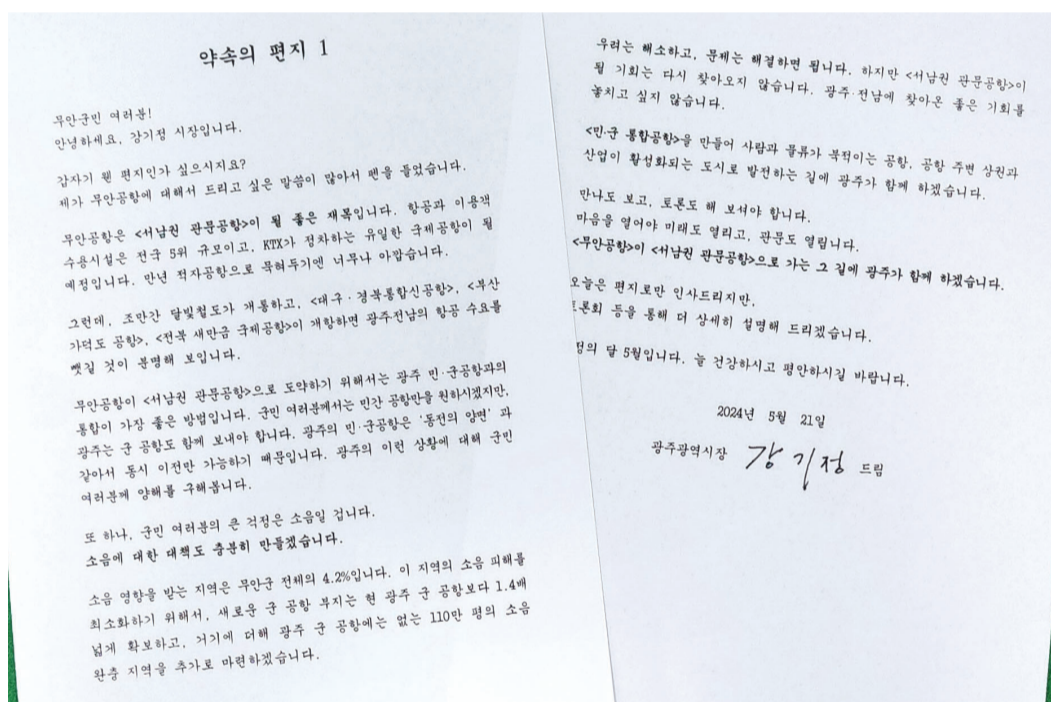 약속의 편지 1
무안군민 여러분!
안녕하세요, 강기정 시장입니다.
갑자기 웬 편지인가 싶으시지요?
제가 무안공항에 대해서 드리고 싶은 말씀이 많아서 펜을 들었습니다.
무안공항은 <서남권 관문공항>이 될 좋은 재목입니다. 항공과 이용객
수용시설은 전국 5위 규모이고, KTX가 정차하는 유일한 국제공항이 될
예정입니다. 만년 적자공항으로 묵혀두기엔 너무나 아깝습니다.
그런데, 조만간 달빛철도가 개통하고, <대구·경북통합신공항>, <부산
가덕도 공항>, <전북 새만금 국제공항>이 개항하면 광주전남의 항공 수요를
뺏길 것이 분명해 보입니다.
무안공항이 <서남권 관문공항>으로 도약하기 위해서는 광주 민·군공항과의
통합이 가장 좋은 방법입니다. 군민 여러분께서는 민간 공항만을 원하시겠지만,
광주는 군 공항도 함께 보내야 합니다. 광주의 민·군공항은 '동전의 양면' 과
같아서 동시 이전만 가능하기 때문입니다. 광주의 이런 상황에 대해 군민
여러분께 양해를 구해봅니다.
또 하나, 군민 여러분의 큰 걱정은 소음일 겁니다.
소음에 대한 대책도 충분히 만들겠습니다.
소음 영향을 받는 지역은 무안군 전체의 4.2%입니다. 이 지역의 소음 피해를
최소화하기 위해서, 새로운 군 공항 부지는 현 광주 군 공항보다 1.4배
넓게 확보하고, 거기에 더해 광주 군 공항에는 없는 110만 평의 소음
완충 지역을 추가로 마련하겠습니다.
우려는 해소하고, 문제는 해결하면 됩니다. 하지만 <서남권 관문공항>이
될 기회는 다시 찾아오지 않습니다. 광주·전남에 찾아온 좋은 기회를
놓치고 싶지 않습니다.
<민·군 통합공항>을 만들어 사람과 물류가 북적이는 공항, 공항 주변 상권과
산업이 활성화되는 도시로 발전하는 길에 광주가 함께 하겠습니다.
만나도 보고, 토론도 해 보셔야 합니다.
마음을 열어야 미래도 열리고, 관문도 열립니다.
<무안공항>이 <서남권 관문공항>으로 가는 그 길에 광주가 함께 하겠습니다.
오늘은 편지로만 인사드리지만,
토론회 등을 통해 더 상세히 설명해 드리겠습니다.
정의 달 5월입니다. 늘 건강하시고 평안하시길 바랍니다.
2024년 5월 21일
광주광역시장 강기정 드림